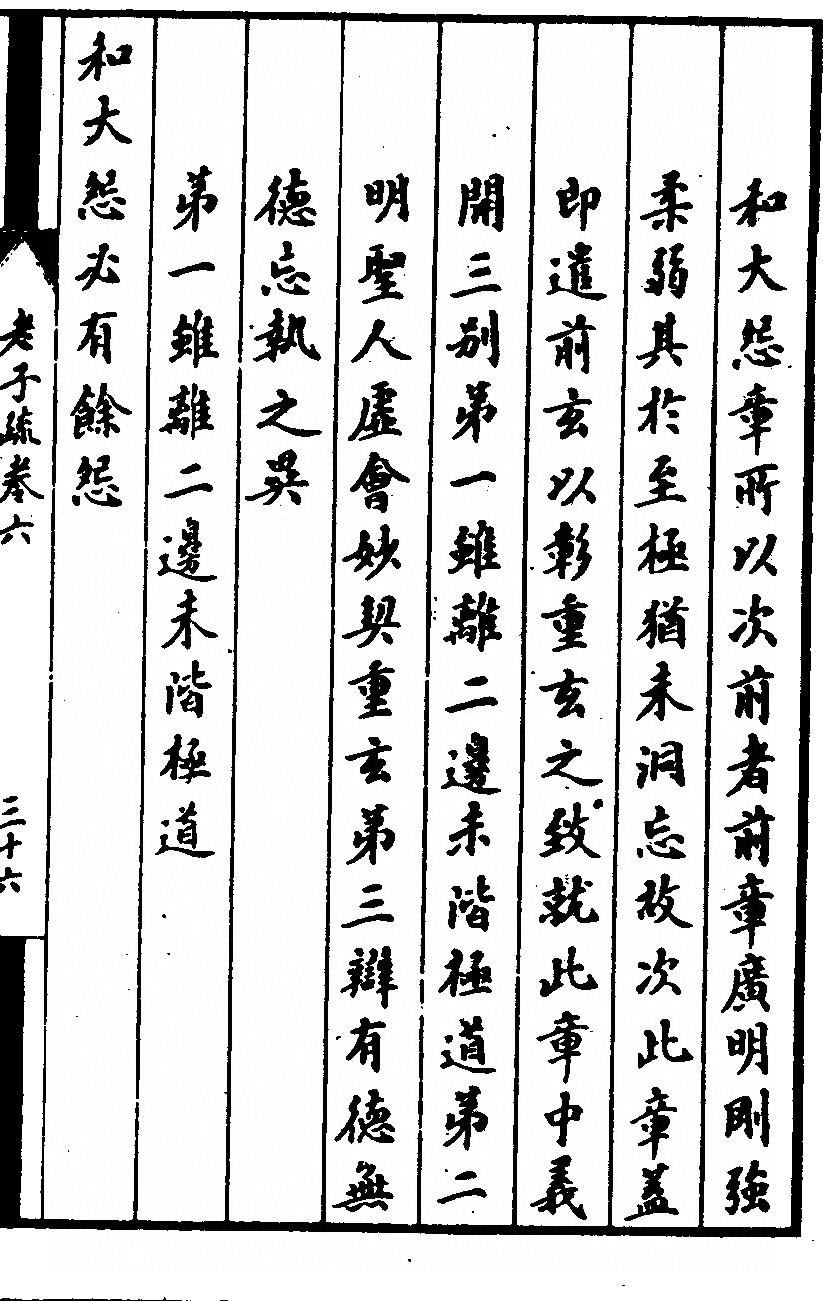 和大怨章所以次前者前章廣明剛強
柔弱其於至極猶未洞忘故次此章蓋
即遣前玄以彰重玄之致就此章中義
開三別第一雖離二邊未階極道第二
明聖人虛會妙契重玄第三辯有德無
德忘執之異
第一雖離二邊未階極道
和大怨必有餘怨
老子疏卷六
三十六